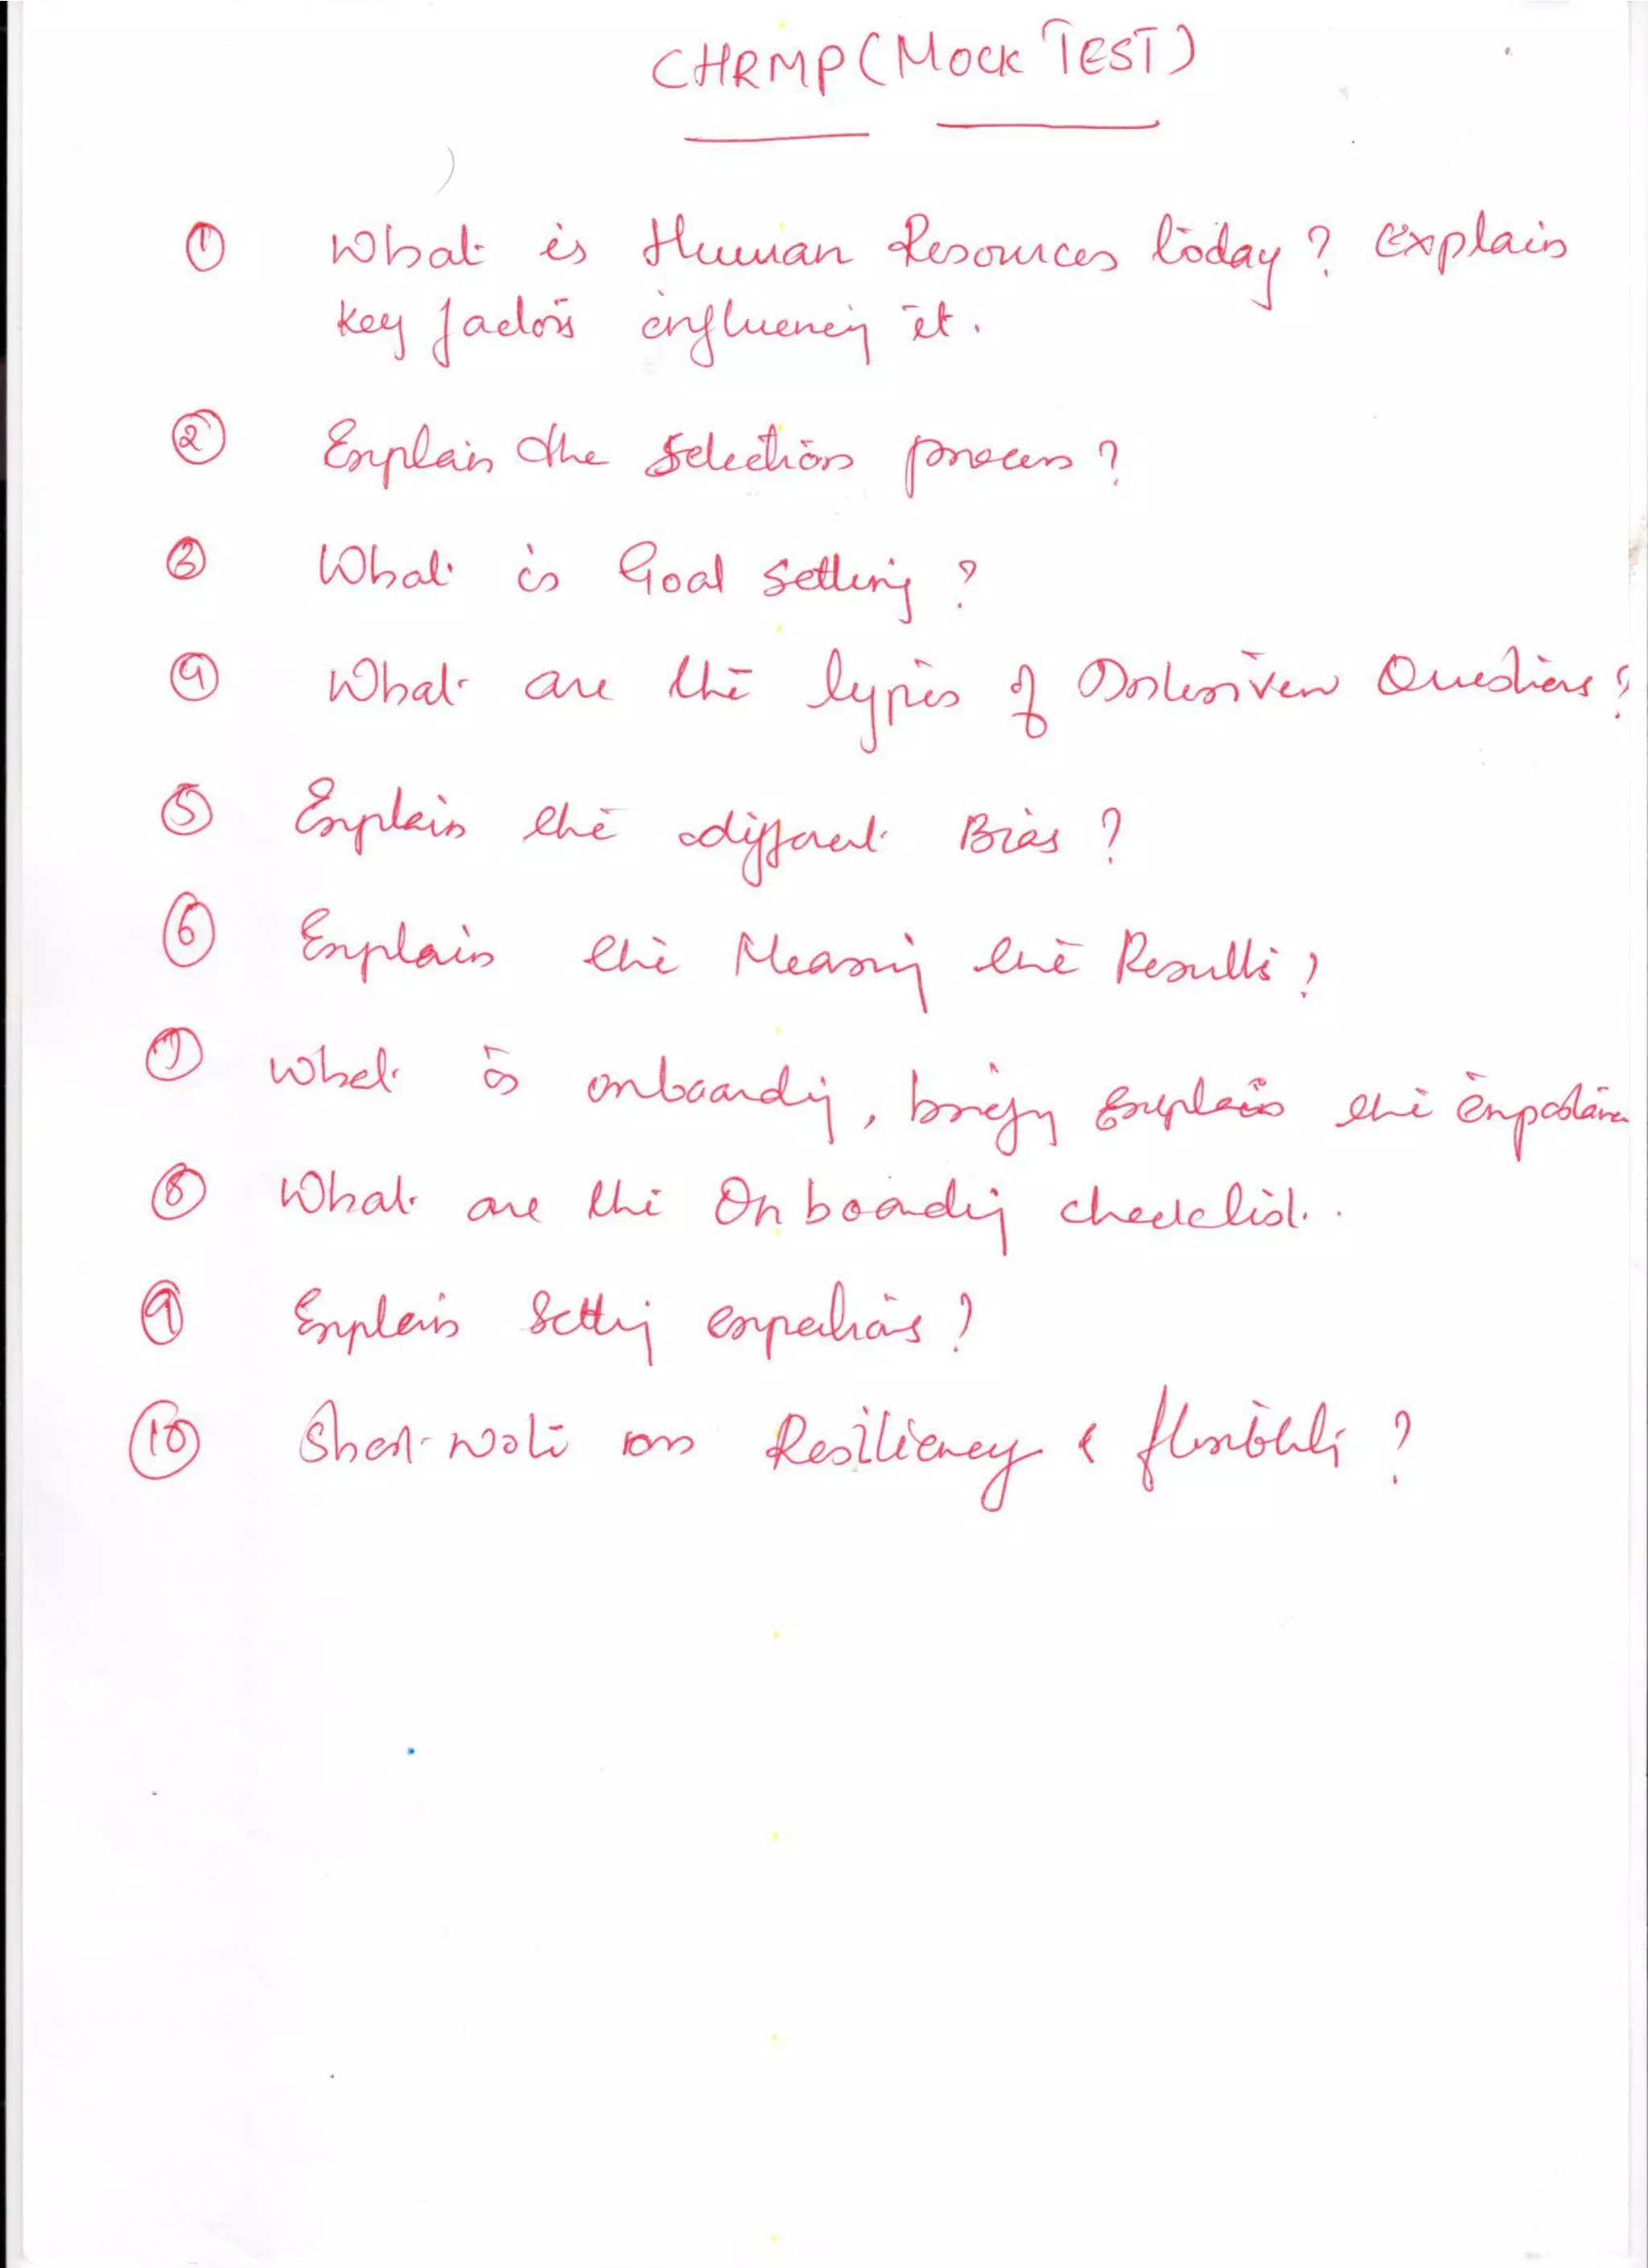 CHRMP (MOCK TEST)
① What is Human Resources today? Explain
key factors influencing it.
② Explain the Selection process?
③ What is Goal setting?
④ What are the types of Interview Questions?
⑤ Explain the different Bias?
⑥ Explain the Measuring the Results?
⑦ What is onboarding, briefly explain the importance
⑧ What are the Onboarding checklist.
⑨ Explain Setting expectations?
⑩ Short note on Resiliency & flexibility?